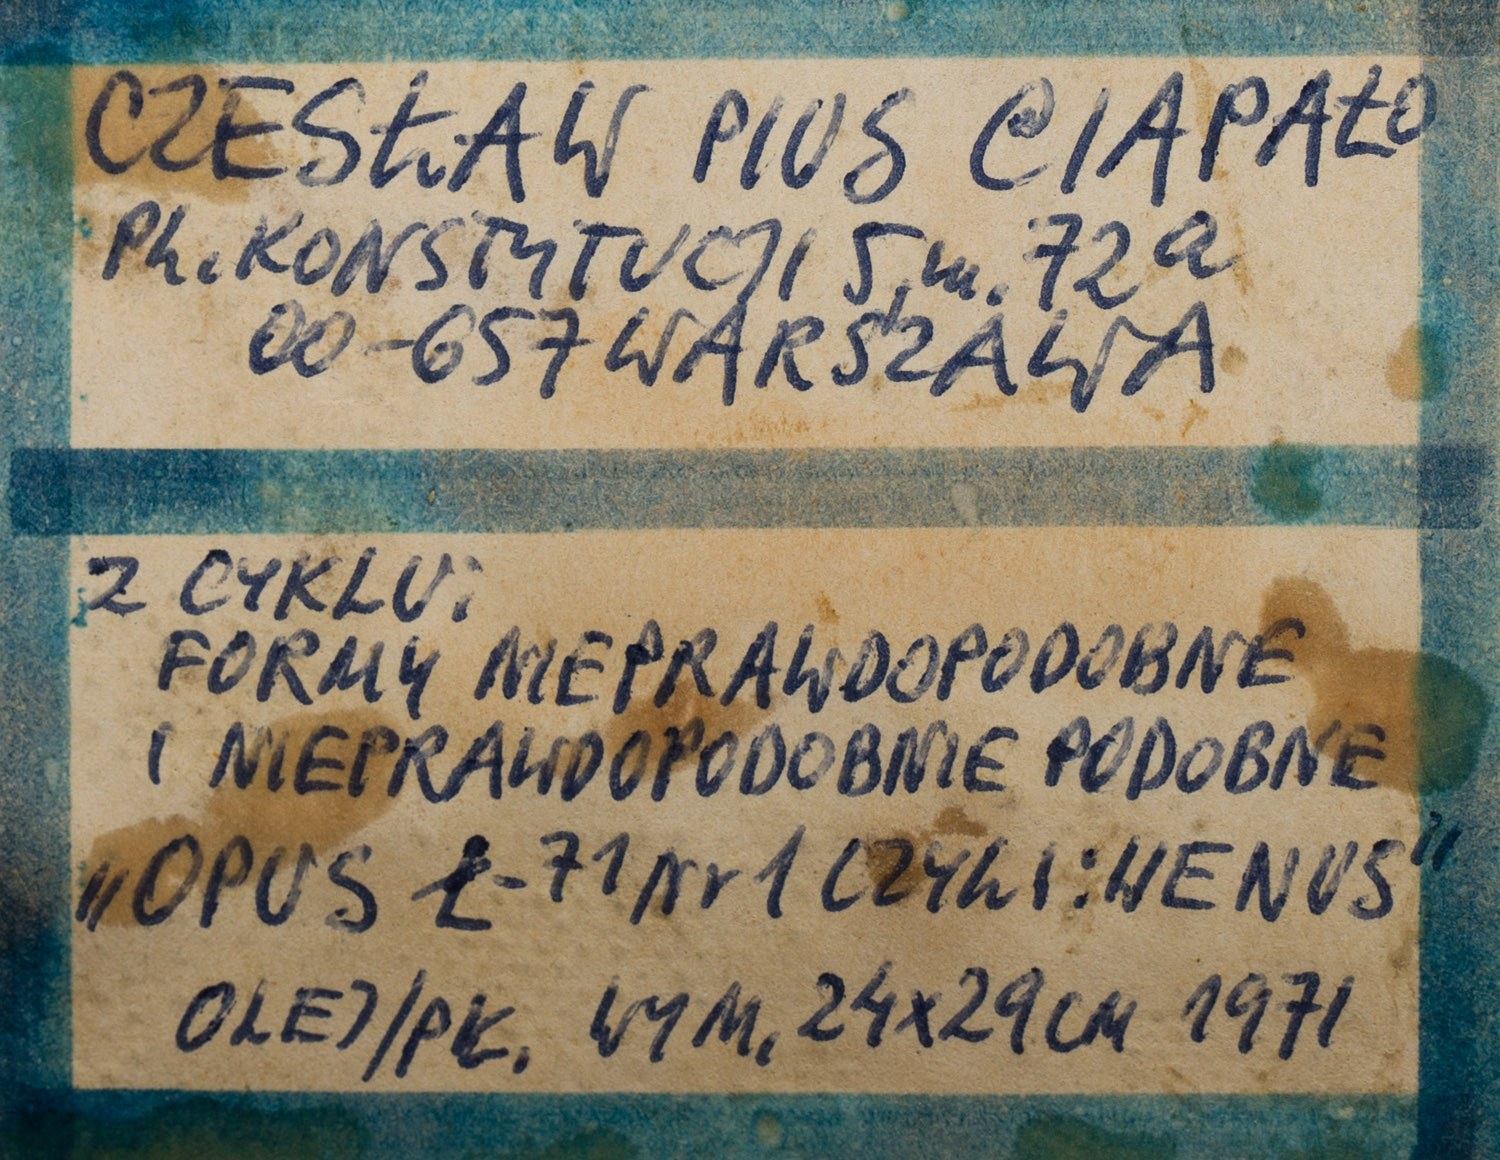 CZESŁAW PIUS CIAPAŁO
PL. KONSTYTUCJI 5 m. 72a
00-657 WARSZAWA
Z CYKLU:
FORMY NIEPRAWDOPODOBNE
I NIEPRAWDOPODOBNIE PODOBNE
„OPUS Ł-71 Nr 1 CZYLI: WENUS”
OLEJ/PŁ. WYM. 24x29cm 1971